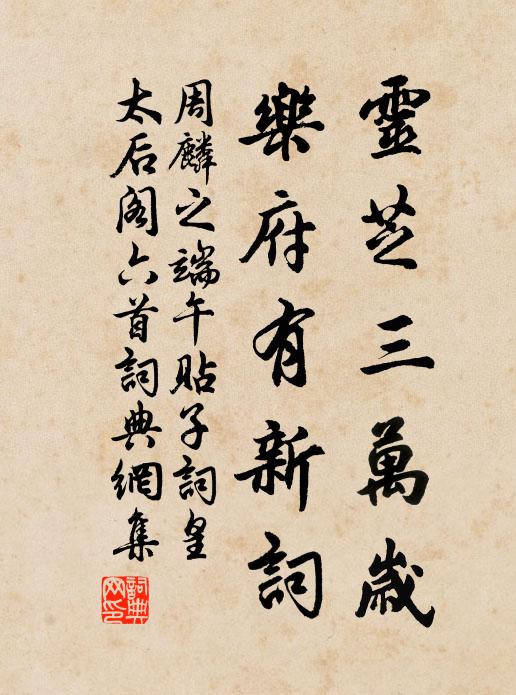 靈芝三萬歲
樂府有新詞
周麟之端午貼子詞皇
太后閣六首詞典網集
詞典网印